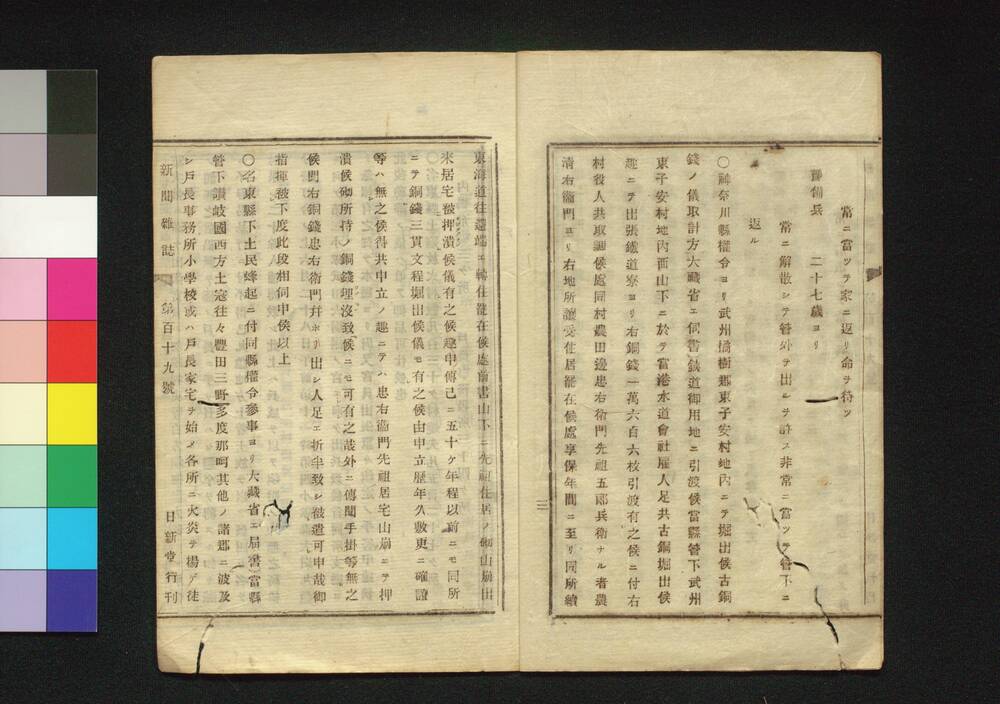 常ニ當ツテ家ニ返リ命ヲ待ツ
豫備兵　二十七歳ヨリ
常ニ解散シテ管外ヲ出ルヲ許ス非常ニ當ツテ管下ニ
返ル
〇神奈川縣權令ヨリ武州橘樹郡東子安村地內ニテ堀出候古銅
錢ノ儀取計方大藏省エ伺書鐵道御用地ニ引渡候當縣管下武州
東子安村地內西山下ニ於テ當港水道會社雇人足共古銅堀出候
趣ニテ出張鐵道寮ヨリ右銅錢一萬六百六枚引渡有之候ニ付右
村役人共取調候處同村農田邊忠右衛門先祖五郎兵衛ナル者農
清右衞門ヨリ右地所讓受住居罷在候處享保年間ニ至リ同所續
三
東海道往還端エ轉住罷在候處前書山下ニ先祖住居ノ砌山崩出
來居宅被押潰候儀有之候趣申傳己ニ五十ケ年程以前ニモ同所
ニテ銅錢三貫文程堀出候儀モ有之候由申立歴年久敷更ニ確證
等ハ無之候得共申立ノ趣ニテハ忠右衞門先祖居宅山崩ニテ押
潰候砌所持ノ銅錢埋沒致候ニモ可有之哉外ニ傳聞手掛等無之
候間右銅錢忠右衛門幷ホリ出シ人足エ折半致シ被遣可申哉御
指揮被下度此段相伺申候以上
〇名東縣下土民蜂起ニ付同縣權令參事ヨリ大藏省エ届書當縣
管下讃岐國西方土寇往々豐田三野多度那珂其他ノ諸郡ニ波及
シ戸長事務所小學校或ハ戸長家宅ヲ始メ各所ニ火炎ヲ揚ゲ徒
新聞雜誌　第百十九號　日新堂行刊